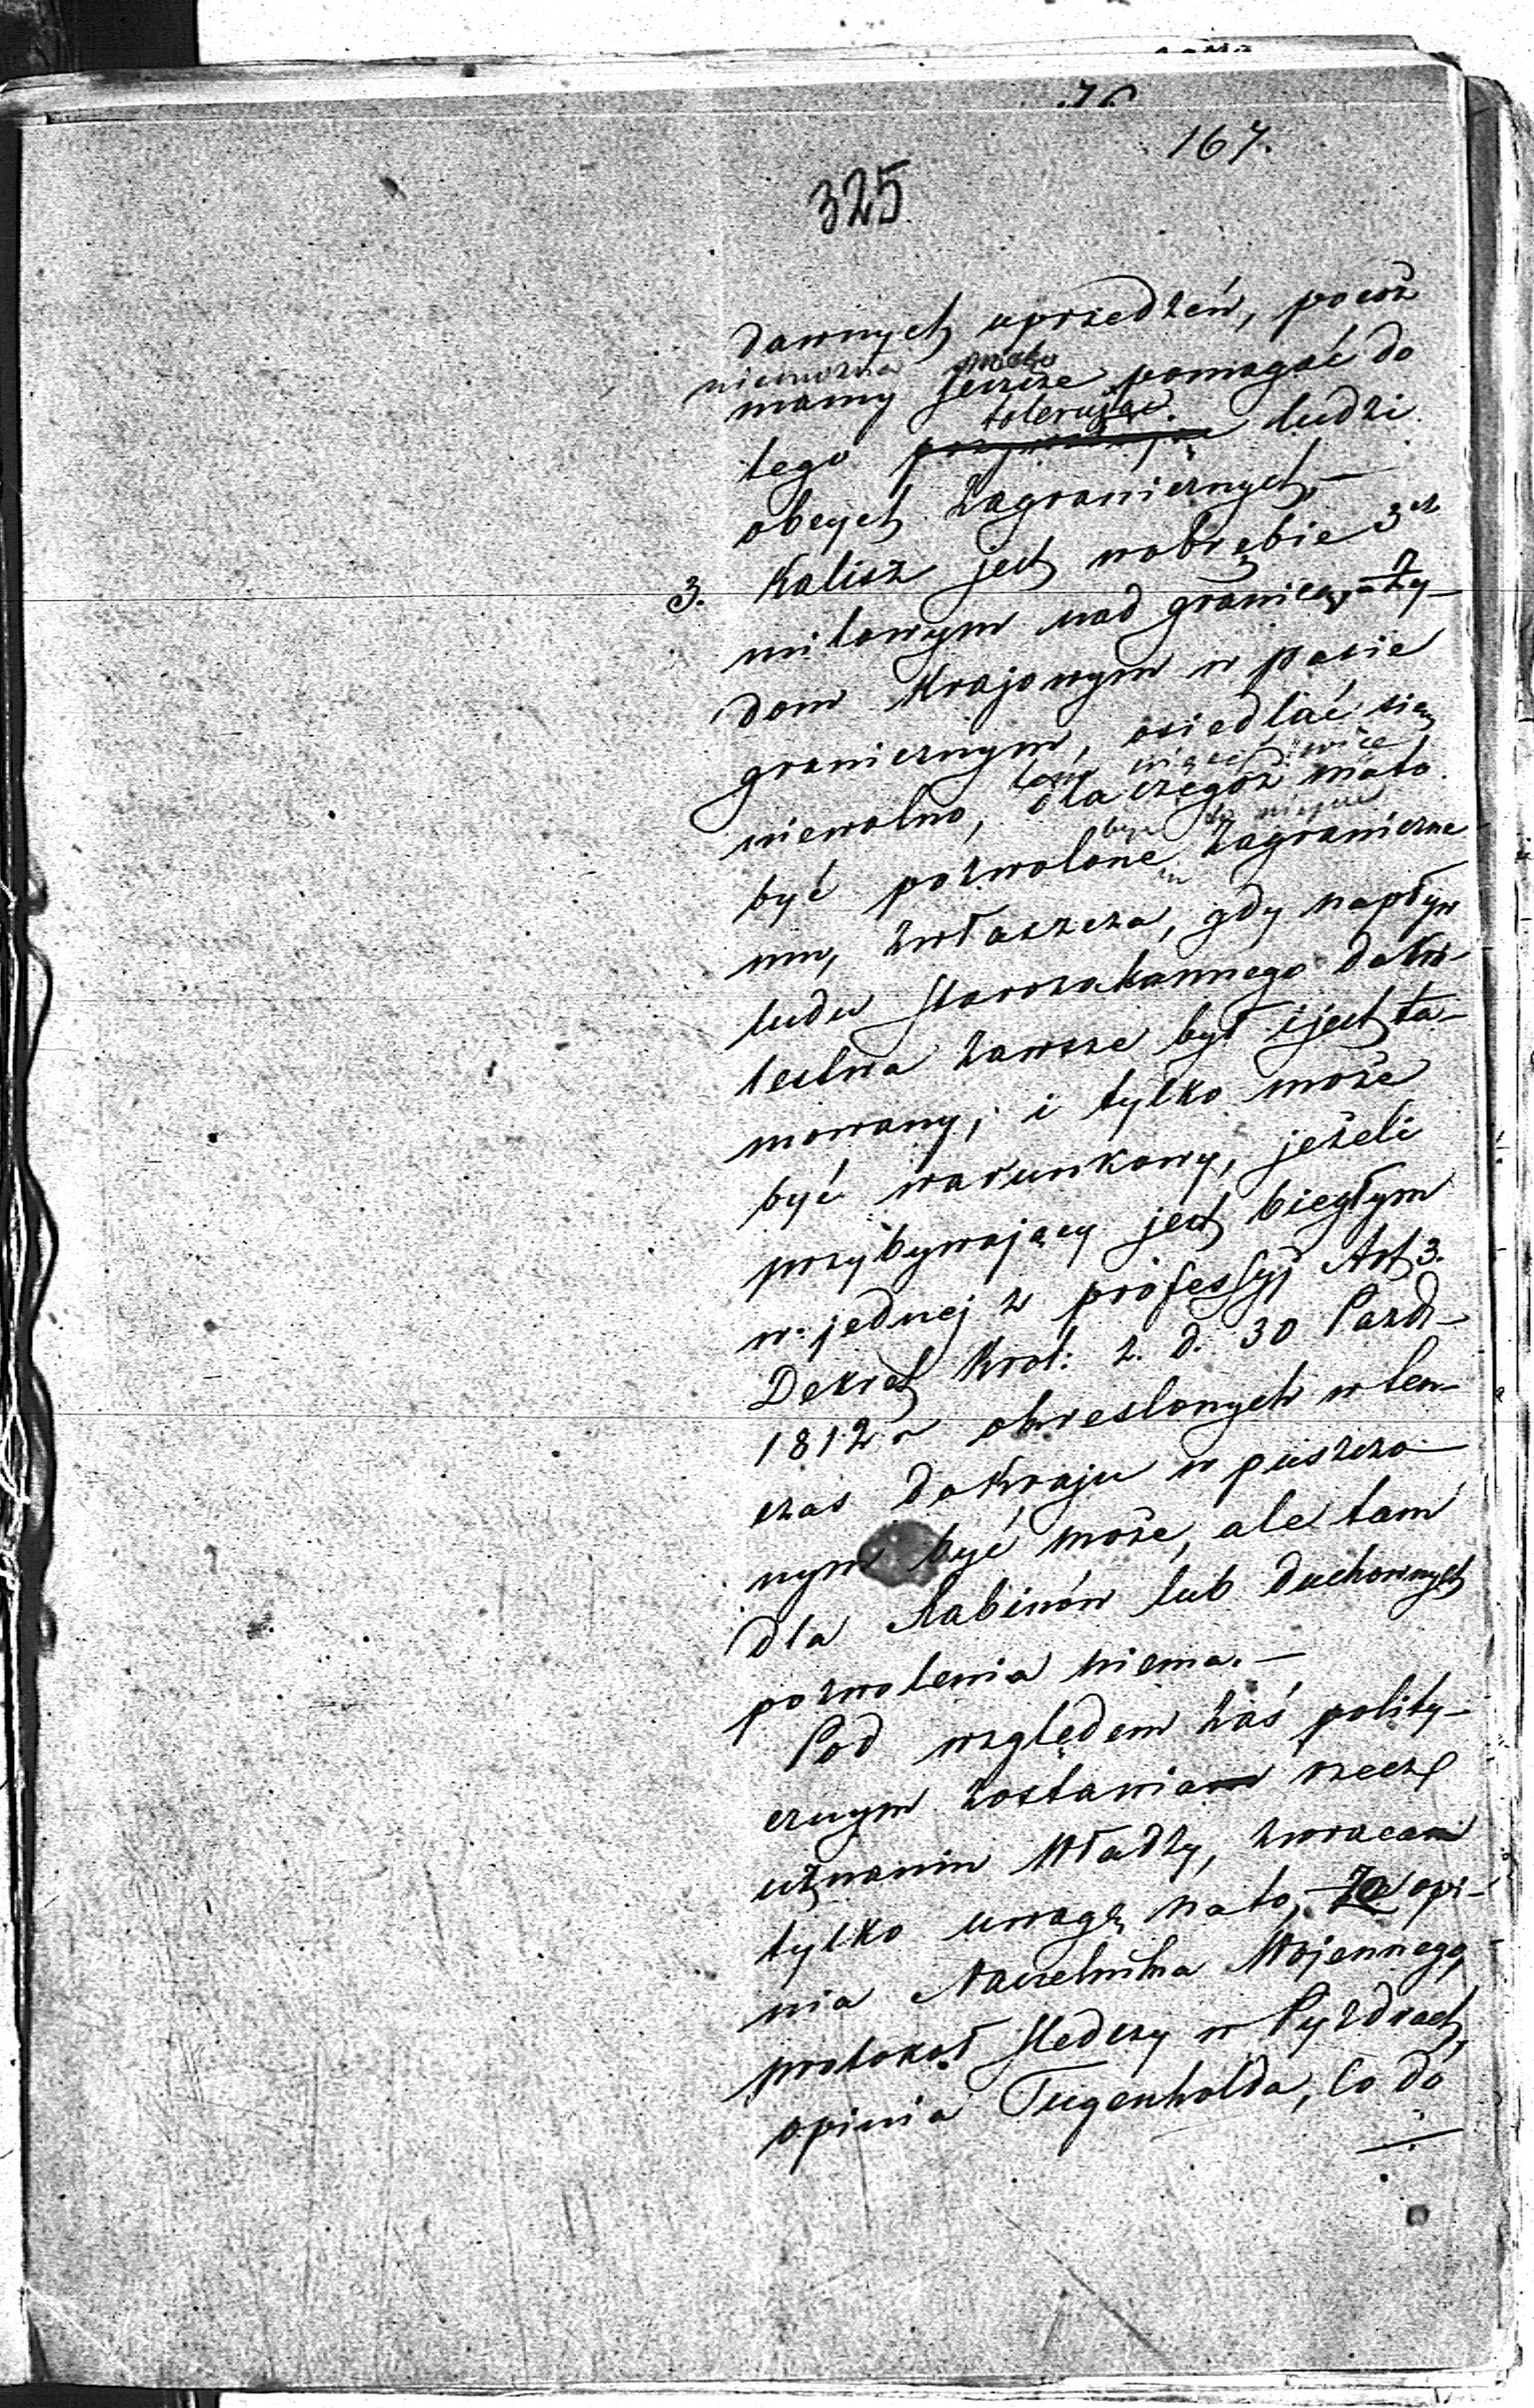 167.
325
dawnych uprzedzeń, pocóż
mamy jeszcze pomagać do
tolerując.
tego ludzi
obcych zagranicznych,—
3. Kalisz jest wobrębie 3ch
milowym nad granicą, Ży-
dom Krajowym w pasie
granicznym, osiedlać się
więcej
niewolno, dla czegóż miało
być pozwolone zagraniczne
mu, zwłaszcza, gdy napływ
ludu Starozakonnego do Kró-
lestwa zawsze był i jest ta-
mowany, i tylko może
być warunkowy, jeżeli
przybywający jest biegłym
w jednej z professyj Art 3.
Dekret Król: z. d. 30 Pazdz-
1812 r okreslonych w ten-
czas do Kraju w puszczo-
nym być może, ale tam
dla Rabinów lub duchownych
pozwolenia niema.—
Pod względem zaś polity-
cznym zostawiam rzecz
uznaniu Władzy, zwracam
tylko uwagę na to, Że opi-
nia Naczelnika Wojennego,
protokoł Sledczy w Pyzdrach,
opinia Tugenholda, Co do